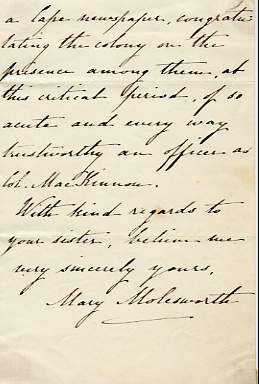 a Cape newspaper, congratu-
lating the colony on the
presence among them, at
this critical period, of so
acute and every way
trustworthy an officer as
Col. MacKinnon.
With kind regards to
your sister, believe me
very sincerely yours,
Mary Molesworth